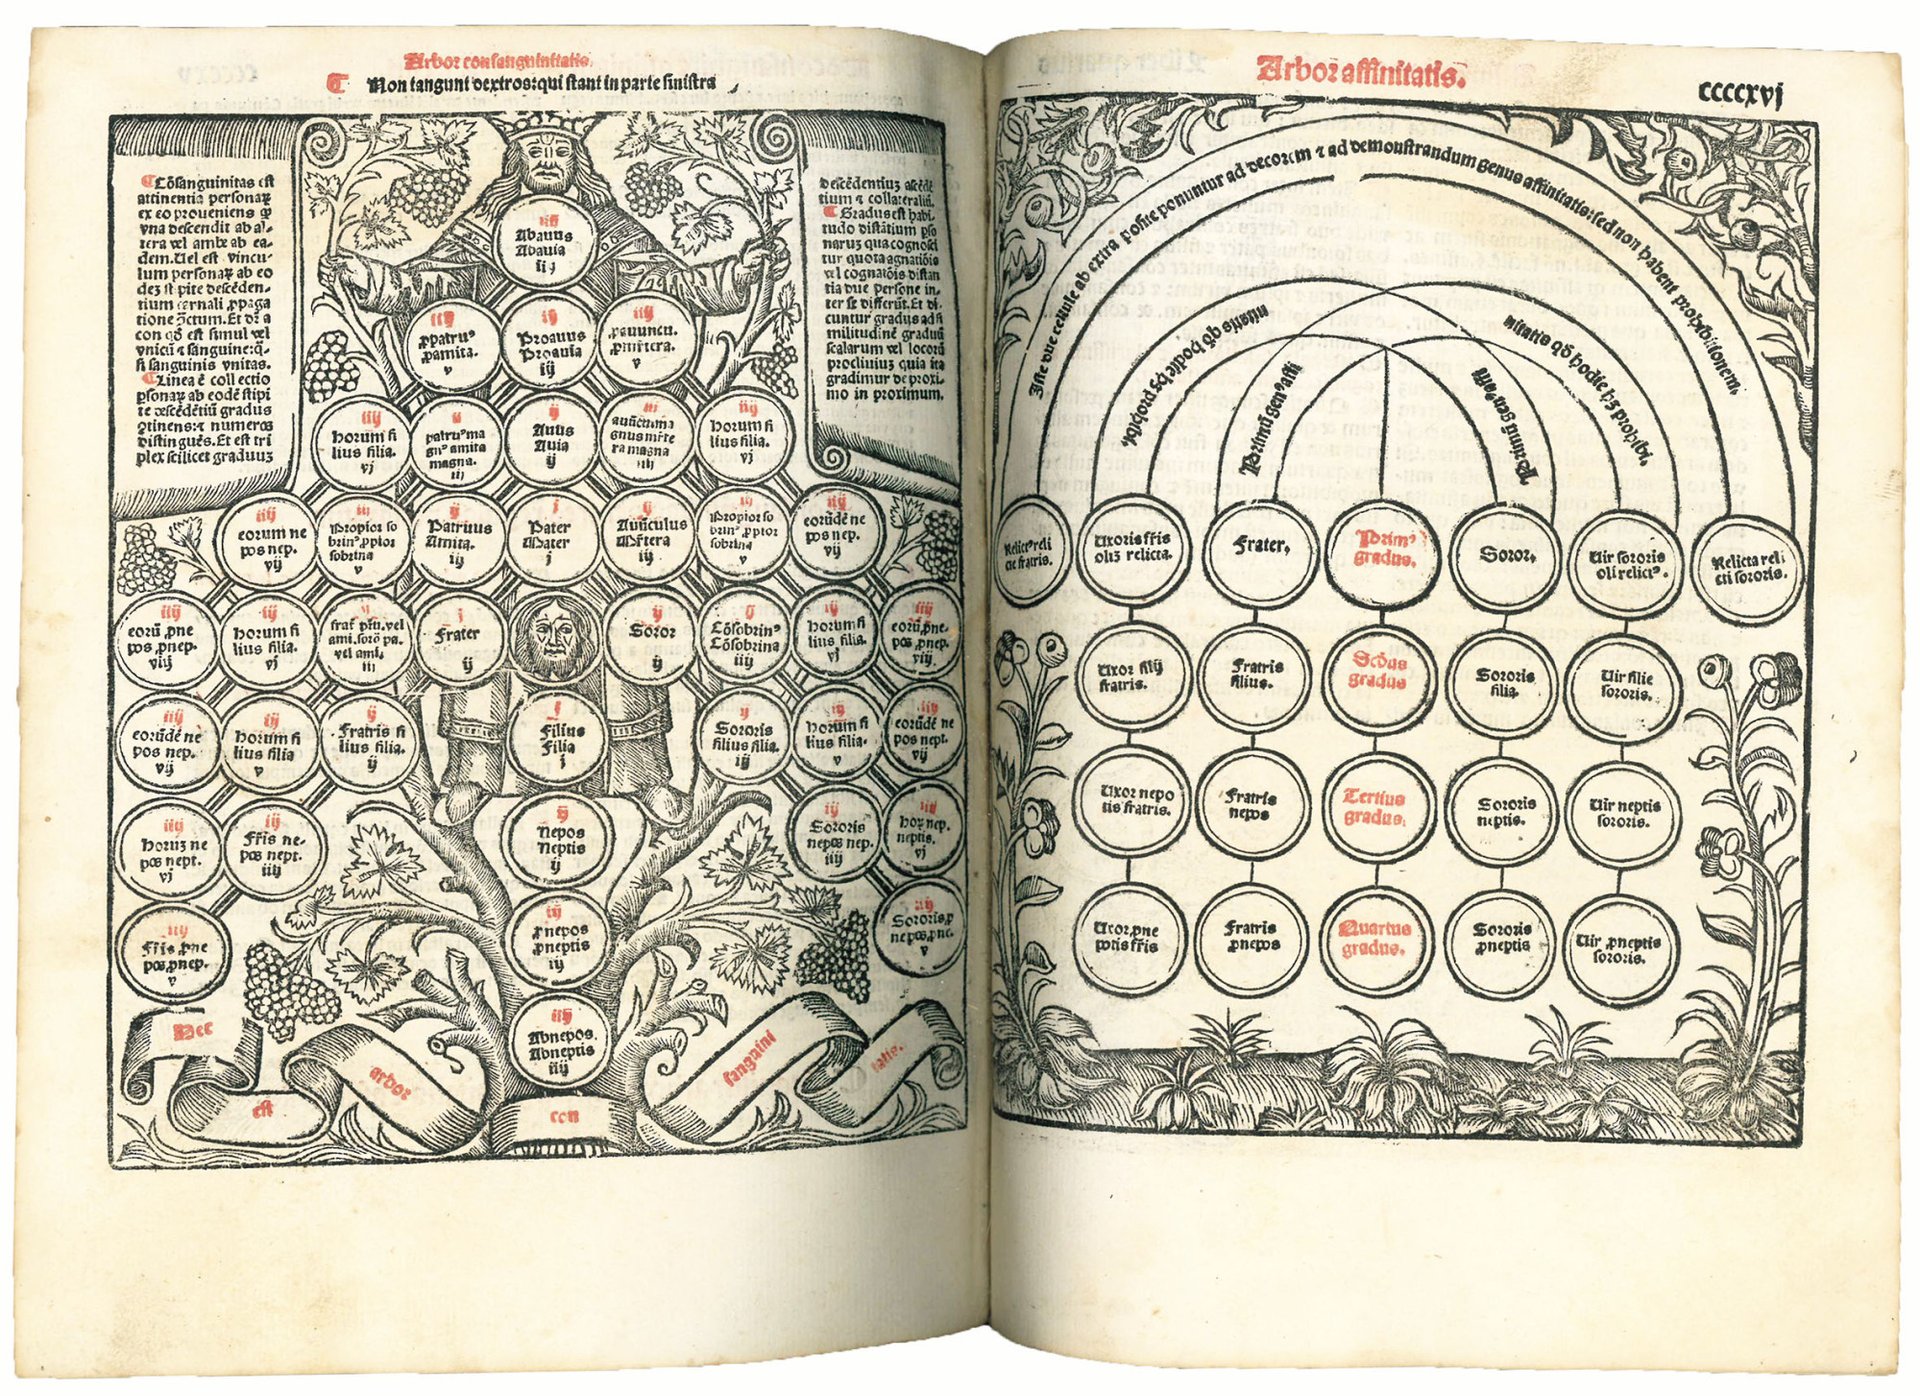 Arbor consanguinitatis.
Non tangunt dextros: qui stant in parte sinistra
Cōsanguinitas est
attinentia personaꝝ
ex eo proueniens ꝙ
vna descendit ab al-
tera vel ambe ab ea-
dem. Uel est vincu-
lum personaꝝ ab eo
deȝ stipite descēden-
tium carnali ꝓpaga
tione
con
vnici ⁊ sanguine: q̄-
si sanguinis vnitas.
Linea ē collectio
ꝑsonaꝝ ab eodē stipi
te descēdētiū gradus
ꝯtinens: ⁊ numeros
distinguēs. Et est tri
plex scilicet graduuȝ
descēdentiuȝ ascēdē
tium ⁊ collateraliū.
Gradus est habi
tudo distātium ꝑso
naruȝ qua cognosci
tur quota agnatiōis
vel cognatōis distan
tia due persone in-
ter se differūt. Et di
cuntur gradus ad si
militudinē graduū
scalarum vel locorū
procliuiuȝ quia ita
gradimur de proxi-
mo in proximum.
iiij
Abauus
Abauia
iiij
ꝓpatruꝰ
ꝓamita.
v
iij
Proauus
Proauia
iij
iiij
ꝓauuncu.
v
iiij
horum fi
lius filia.
vj
patruꝰ ma
gnꝰ amita
magna.
iiij
ij
Auus
Auia
ij
gnus
ra magna
iiij
iiij
horum fi
lius filia.
vj
iiij
eorum ne
pos nep.
vij
iij
Propior so
brinꝰ ꝓpior
sobrina
v
ij
Patruus
Amita.
iij
j
Pater
Mater
j
ij
Auūculus
iij
iij
Propior so
brinꝰ ꝓpior
sobrina
v
iiij
eorūdē ne
pos nep.
vij
iiij
eorū ꝓne
pos ꝓnep.
viij
iij
horum fi
lius filia.
vj
vel
vel ami.
iiij
j
Frater
ij
ij
Soror
ij
ij
Cōsobrinꝰ
Cōsobrina
iiij
iij
horum fi
lius filia.
vj
iiij
eorū ꝓne-
pos ꝓnep.
viij
iiij
eorūdē nē
pos nep.
vij
iij
horum fi
lius filia
v
ij
Fratris fi
lius filia.
iij
j
Filius
Filia
j
ij
Sororis
filius filia.
iij
iij
horum fi
lius filia.
v
iiij
eorūdē ne
pos nept.
vij
iiij
horuȝ ne
pos nept.
vj
iij
Fr̄is ne-
pos nept.
iiij
ij
Nepos
Neptis
ij
iij
Sororis
nepos nep.
iiij
iiij
neptis.
vj
iiij
Fr̄is ꝓne
pos ꝓnep.
v
iij
ꝓnepos
ꝓneptis
iij
iiij
Sororis ꝓ
nepos ꝓne.
v
iiij
Abnepos.
Abneptis
iiij
Nec
est
arbor
con
sanguini
tatis.
Arbor affinitatis.
ccccxvj
Iste due cellule ab extra posite ponuntur ad decorem ⁊ ad demonstrandum genus affinitatis: sed non habent prohibitionem.
nitatis qđ hodie hȝ prohibi.
Primū genꝰ affi
nitatis qđ hodie hȝ prohibi.
Primū genꝰ affi
Relictꝰ reli
cte fratris.
Uxoris fr̄is
oliȝ relicta.
Frater.
Primꝰ
gradus.
Soror.
Uir sororis
oli relictꝰ.
Relicta reli
cti sororis.
Uxor filij
fratris.
Fratris
filius.
Scđus
gradus
Sororis
filia.
Uir filie
sororis.
Uxor nepo
tis fratris.
Fratris
nepos
Tertius
gradus.
Sororis
neptis.
Uir neptis
sororis.
Uxor ꝓne
potis fr̄is
Fratris
ꝓnepos
Quartus
gradus.
Sororis
ꝓneptis
Uir ꝓneptis
sororis.